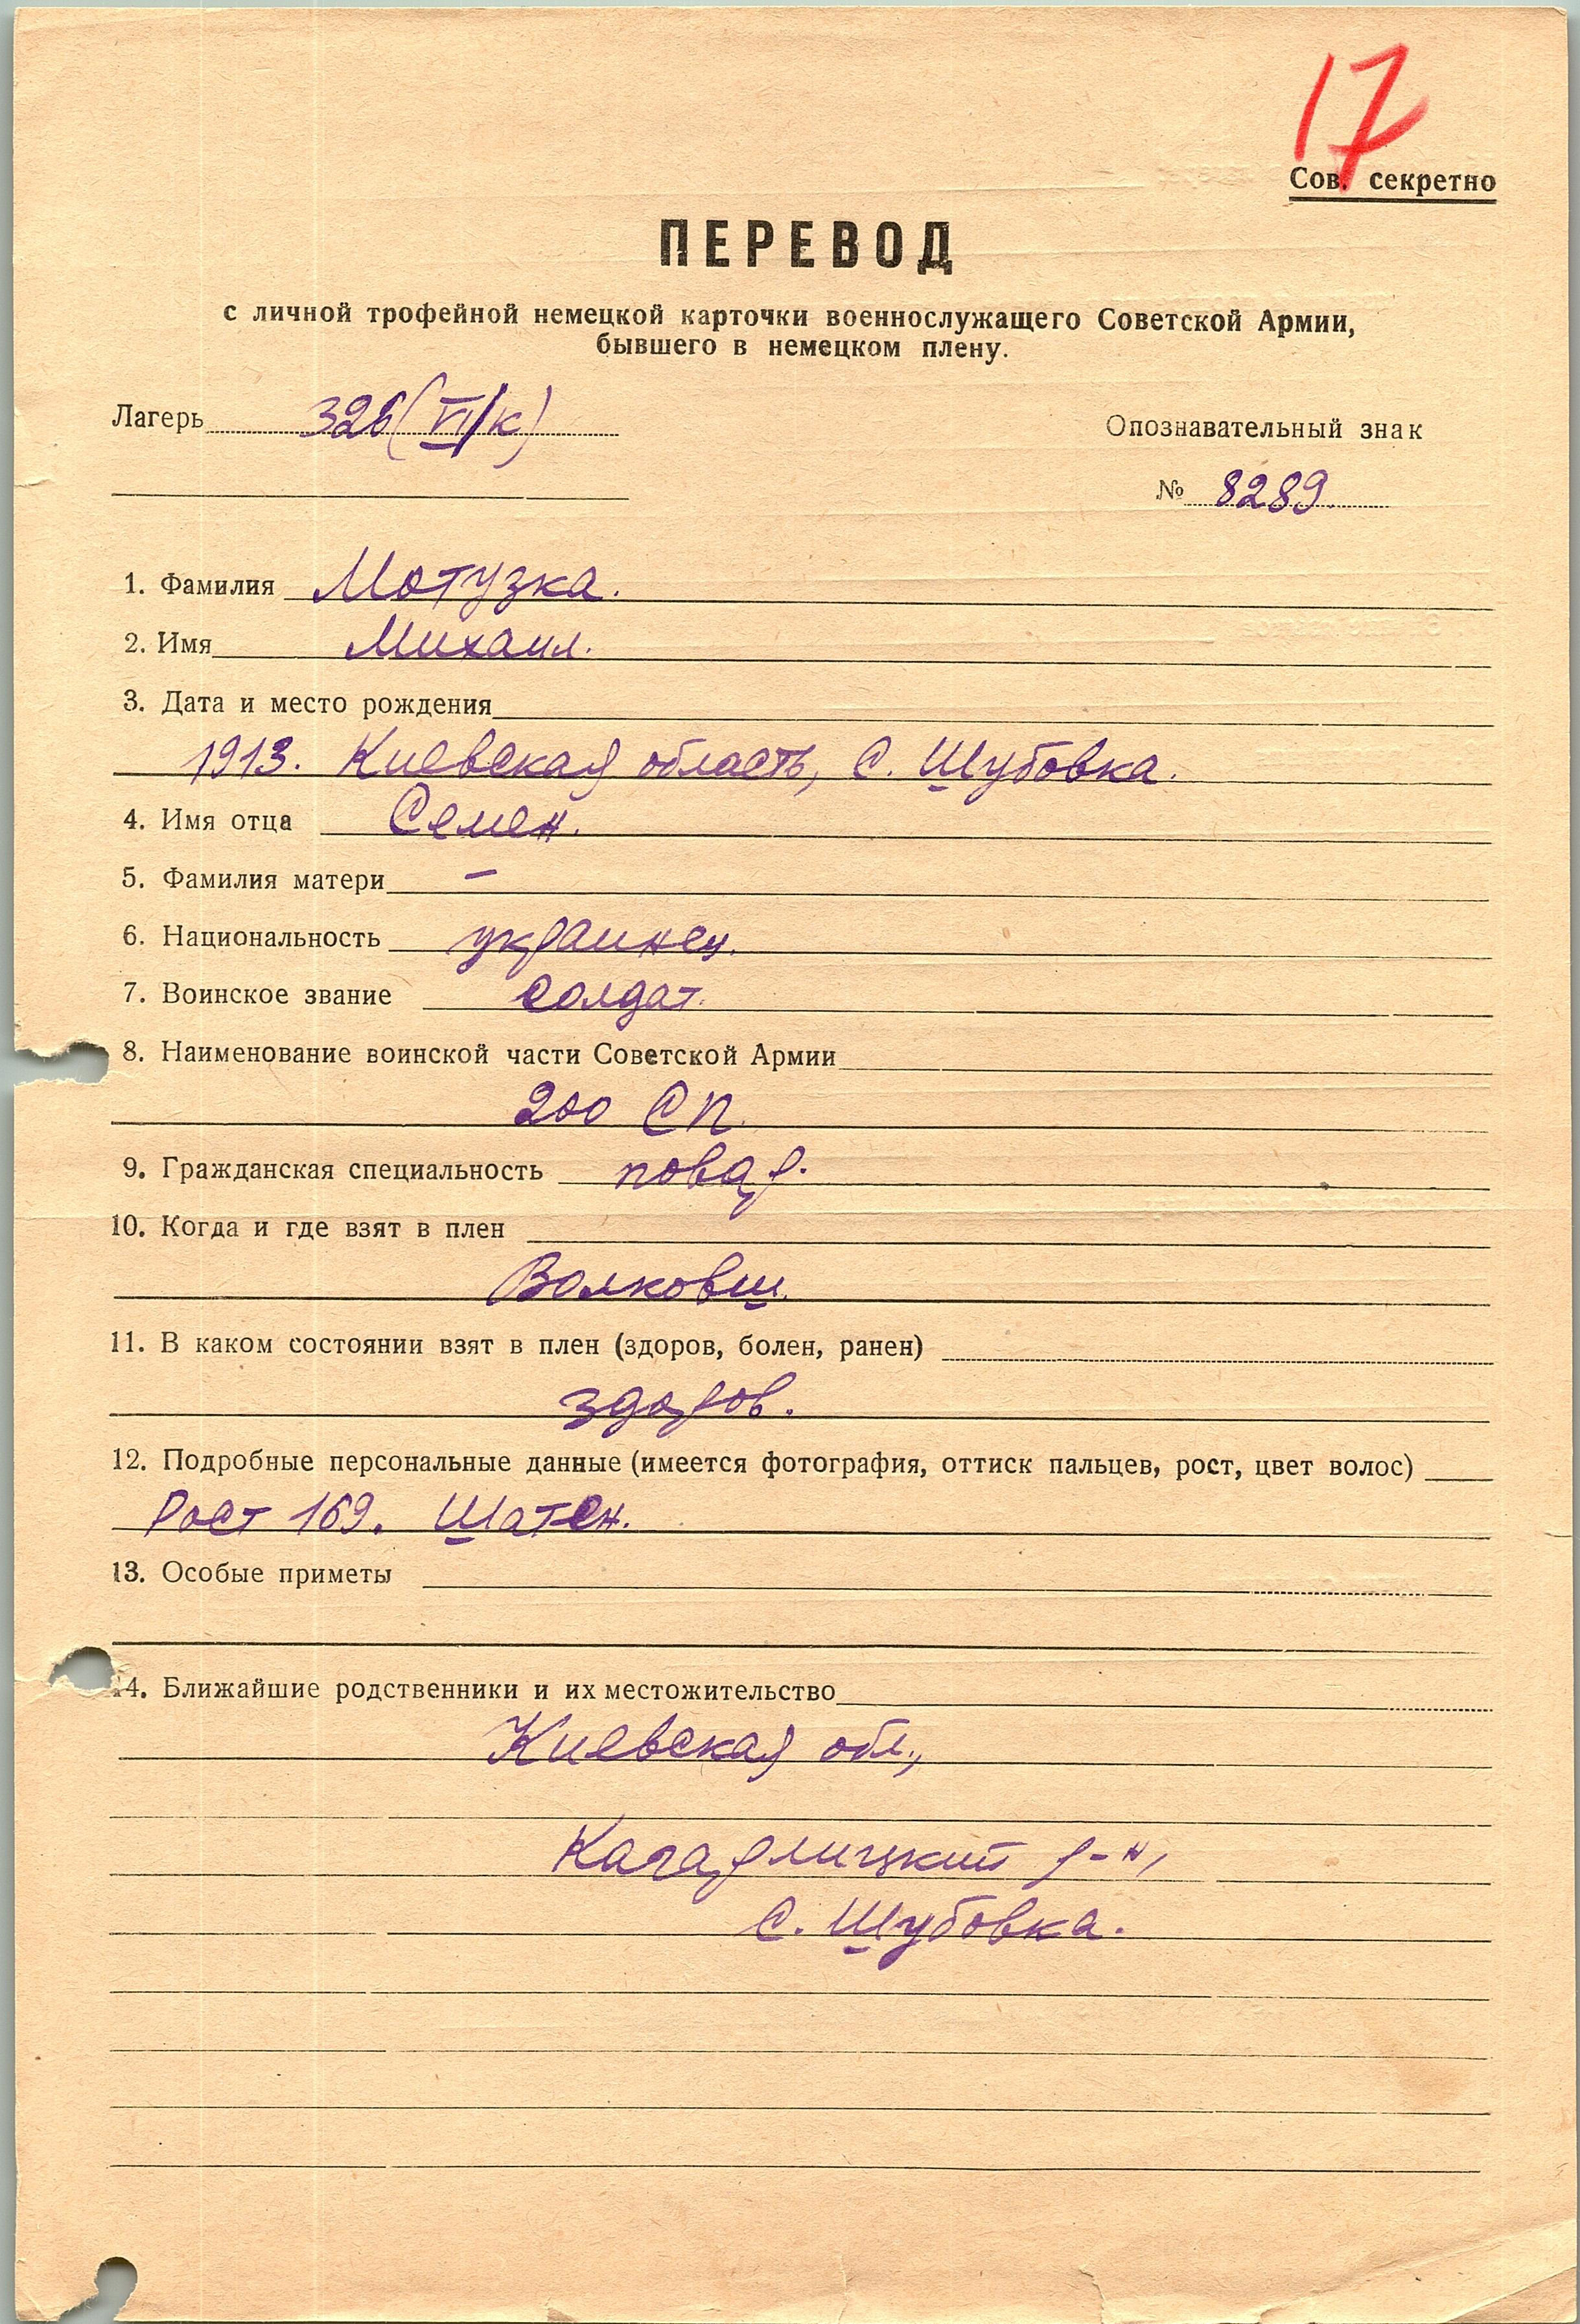 17
Сов. секретно
ПЕРЕВОД
с личной трофейной немецкой карточки военнослужащего Советской Армии,
бывшего в немецком плену.
Лагерь 326 (VI/к)
Опознавательный знак
№ 8289.
1. Фамилия Мотузка.
2. Имя Михаил.
3. Дата и место рождения
1913. Киевская область, с. Шубовка.
4. Имя отца Семен.
5. Фамилия матери –
6. Национальность украинец.
7. Воинское звание солдат.
8. Наименование воинской части Советской Армии
200 СП.
9. Гражданская специальность повар.
10. Когда и где взят в плен
Волковш.
11. В каком состоянии взят в плен (здоров, болен, ранен)
здоров.
12. Подробные персональные данные (имеется фотография, оттиск пальцев, рост, цвет волос)
Рост 169. Шатен.
13. Особые приметы
14. Ближайшие родственники и их местожительство
Киевская обл.,
Кагарлицкий р-н,
с. Шубовка.